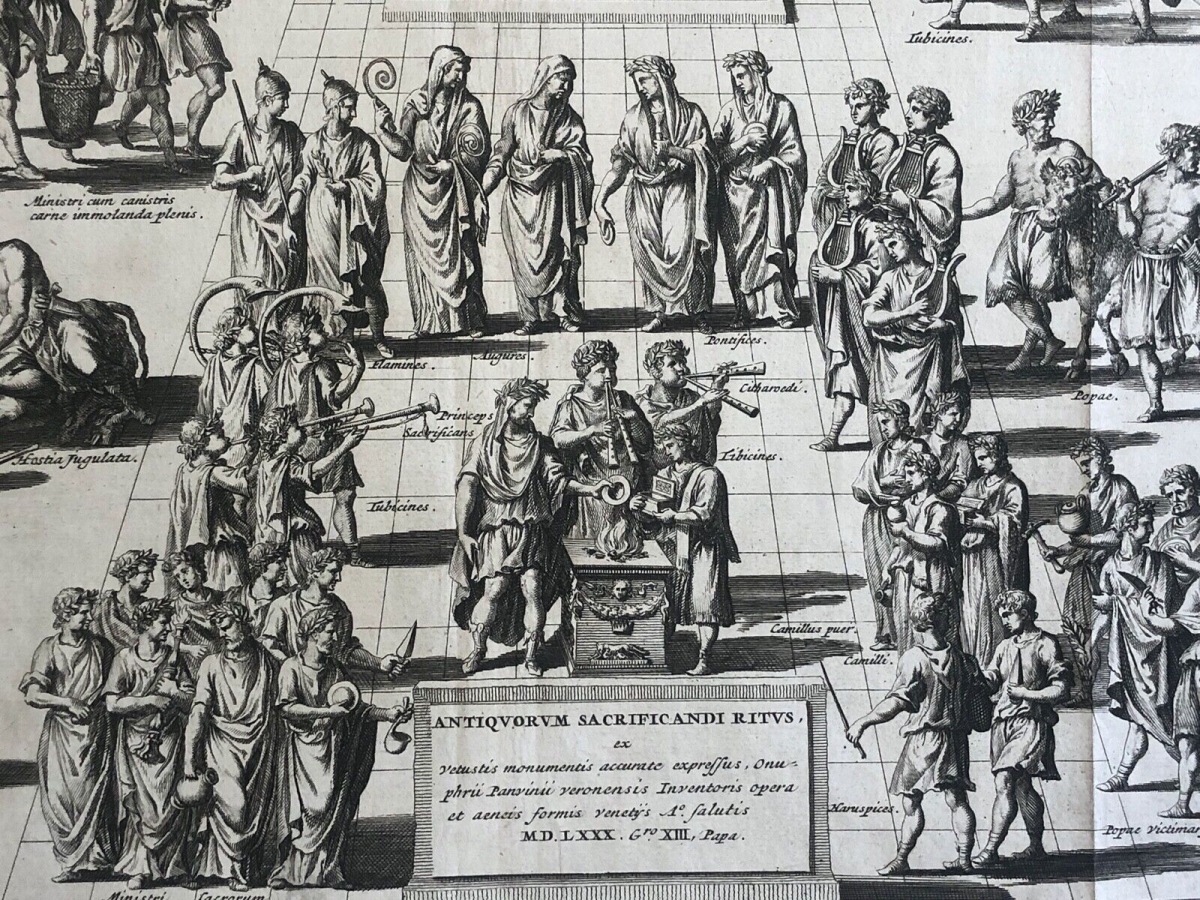 Tubicines.
Ministri cum canistris
carne immolanda plenis.
Flamines.
Augures.
Pontifices.
Citharoedi.
Popae.
Princeps
Sacrificans
Hostia Jugulata.
Tibicines.
Tubicines.
Camillus puer.
Camilli.
ANTIQVORVM SACRIFICANDI RITVS,
ex
vetustis monumentis accurate expreſsus, Onu-
phrii Panvinii veronensis Inventoris opera
et aeneis formis venetÿs Aº. ſalutis
MD.LXXX. Gro XIII, Papa.
Haruspices.
Popae Victimar
Ministri Sacrorum